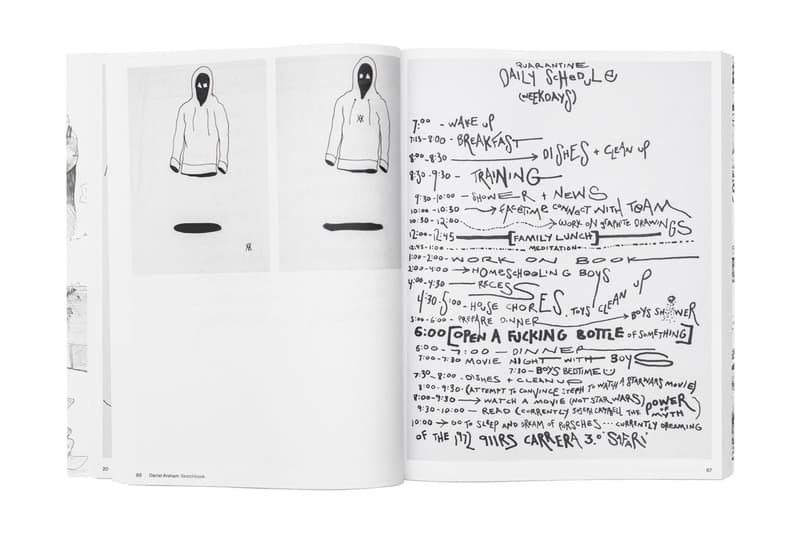 QUARANTINE
DAILY SCHEDULE
(WEEKDAYS)
7:00 - WAKE UP
7:15-8:00 - BREAKFAST
8:00-8:30 → DISHES + CLEAN UP
8:30-9:30 - TRAINING
9:30-10:00 - SHOWER + NEWS
10:00-10:30 → FACETIME CONNECT WITH TEAM
10:30-12:00 → WORK ON GRAPHITE DRAWINGS
12:00-12:45 [FAMILY LUNCH]
12:45-1:00 - MEDITATION
1:00-2:00 - WORK ON BOOK
2:00-4:00 → HOMESCHOOLING BOYS
4:00-4:30 - RECESS
4:30-5:00 - HOUSE CHORES, TOYS CLEAN UP
5:00-6:00 - PREPARE DINNER → BOYS SHOWER
6:00 [OPEN A FUCKING BOTTLE OF SOMETHING]
6:00-7:00 - DINNER
7:00-7:30 MOVIE NIGHT WITH BOYS
7:30 - BOYS BEDTIME
7:30-8:00 - DISHES + CLEAN UP
8:00-9:30 - (ATTEMPT TO CONVINCE STEPH TO WATCH A STARWARS MOVIE)
8:00-9:30 → WATCH A MOVIE (NOT STAR WARS)
9:30-10:00 - READ (CURRENTLY JOSEPH CAMPBELL THE POWER OF MYTH)
10:00 → GO TO SLEEP AND DREAM OF PORSCHES... CURRENTLY DREAMING
OF THE 1972 911RS CARRERA 3.0 'SAFARI'
20
66 Daniel Arsham: Sketchbook
67